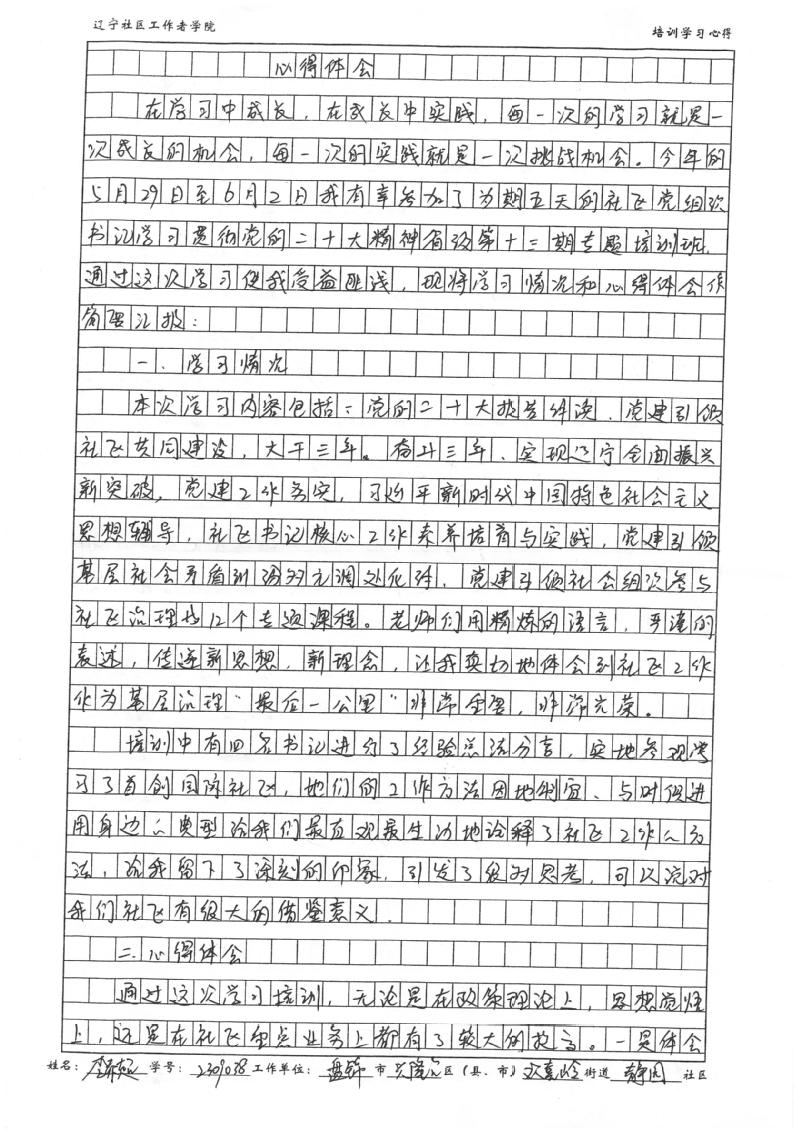 辽宁社区工作者学院 培训学习心得
心得体会
在学习中成长，在成长中实践，每一次的学习就是一
次成长的机会，每一次的实践就是一次挑战机会。今年的
5月29日至6月2日我有幸参加了为期五天的社区党组织
书记学习贯彻党的二十大精神省级第十三期专题培训班，
通过这次学习使我受益匪浅，现将学习情况和心得体会作
简要汇报：
一、学习情况
本次学习内容包括：党的二十大报告解读、党建引领
社区共同建设，大干三年。奋斗三年、实现辽宁全面振兴
新突破，党建工作务实，习近平新时代中国特色社会主义
思想辅导，社区书记核心工作素养培育与实践，党建引领
基层社会矛盾纠纷多元调处化解、党建引领社会组织参与
社区治理共12个专题课程。老师们用精炼的语言，严谨的
表述，传递新思想，新理念，让我真切地体会到社区工作
作为基层治理“最后一公里”非常重要，非常光荣。
培训中有四名书记进行了经验总结分言，实地参观学
习了首创国际社区，她们的工作方法因地制宜、与时俱进
用身边的典型给我们最直观最生动地诠释了社区工作的方
法，给我留下了深刻的印象，引发了很多思考，可以说对
我们社区有很大的借鉴意义。
二、心得体会
通过这次学习培训，无论是在政策理论上，思想觉悟
上，还是在社区重点业务上都有了较大的提高。一是体会
姓名： 学号：2309038 工作单位：盘锦市兴隆台区（县、市） 街道 静园 社区